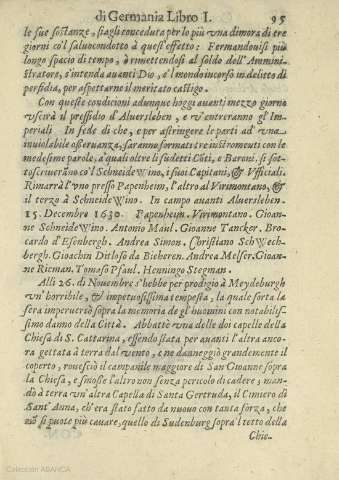 di Germania Libro I. 95
le sue sostanze, siagli conceduta per lo più vna dimora di tre
giorni col saluocondotto à quest'effetto: Fermandouisi più
longo spacio di tempo, ò rimettendosi al soldo dell'Ammini-
stratore, s'intenda auanti Dio, e'l mondo incorso in delitto di
perfidia, per aspettarne il meritato castigo.
Con queste condicioni adunque hoggi auanti mezzo giorno
vscirà il pressidio di Aluersleben, e v'entreranno gl'Im-
periali. In fede di che, e per astringere le parti ad vna
inuiolabile osseruanza, saranno formati tre instromenti con le
medesime parole, à quali oltre li sudetti Cõti, e Baroni, si sot-
toscriuerano co'l SchneideWino, i suoi Capitani, & Vfficiali.
Rimarrà l'vno presso Papenheim, l'altro al Virimontano, &
il terzo à SchneideWino. In campo auanti Aluersleben.
15. Decembre 1630. Papenheim. Virimontano. Gioan-
ne SchneideWino. Antonio Maul. Gioanne Tancker. Bro-
cardo d'Esenbergh. Andrea Simon. Christiano SchWech-
bergh. Gioachin Ditloso da Bieheren. Andrea Melser. Gioan-
ne Ricman. Tomaso Pfaul. Henningo Stegman.
Alli 26. di Nouembre s'hebbe per prodigio à Meydeburgh
vn'horribile, & impetuosissima tempesta, la quale sorta la
sera imperuersò sopra la memoria de gl'huomini con notabilis-
simo danno della Città. Abbattè vna delle doi capelle della
Chiesa di S. Cattarina, essendo stata per auanti l'altra ancora
gettata à terra dal vento, e ne danneggiò grandemente il
coperto, rouesciò il campanile maggiore di San Gioanne sopra
la Chiesa, e smosse l'altro non senza pericolo di cadere; man-
dò à terra vn'altra Capella di Santa Gertruda, il Cimiero di
Sant'Anna, ch'era stato fatto da nuouo con tanta forza, che
nõ si puote più cauare, quello di Sudenburg sopra l tetto della
Chie-
Colección ABANCA